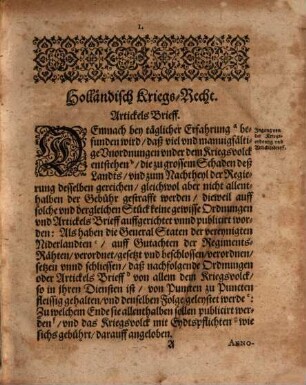 1.
Holländisch Kriegs-Recht.
Artickels Brieff.
DEmnach bey täglicher Erfahrung a be-
funden wird / daß viel und mannigfälti-
ge Unordnungen under dem Kriegsvolck
entstehen b / die zu grossem Schaden deß
Landts / und zum Nachtheyl der Regie-
rung desselben gereichen / gleichwol aber nicht allent-
halben der Gebühr gestrafft werden / dieweil auff
solche und dergleichen Stück keine gewisse Ordnungen
und Artickels Brieff auffgerichtet und publicirt wor-
den: Als haben die General Staten der vereynigten
Niderlandten / auff Gutachten der Regiments-
Rähten / verordnet / gesetzt und beschlossen / verordnen /
setzen unnd schliessen / daß nachfolgende Ordnungen
oder Artickels Brieff von allem dem Kriegsvolck /
so in ihren Diensten ist / von Puncten zu Puncten
fleissig gehalten / und denselben Folge geleystet werde:
Zu welchem Ende sie allenthalben sollen publicirt wer-
den / und das Kriegsvolck mit Eydtspflichten wie
sichs gebührt / darauff angeloben.
A ANNO-